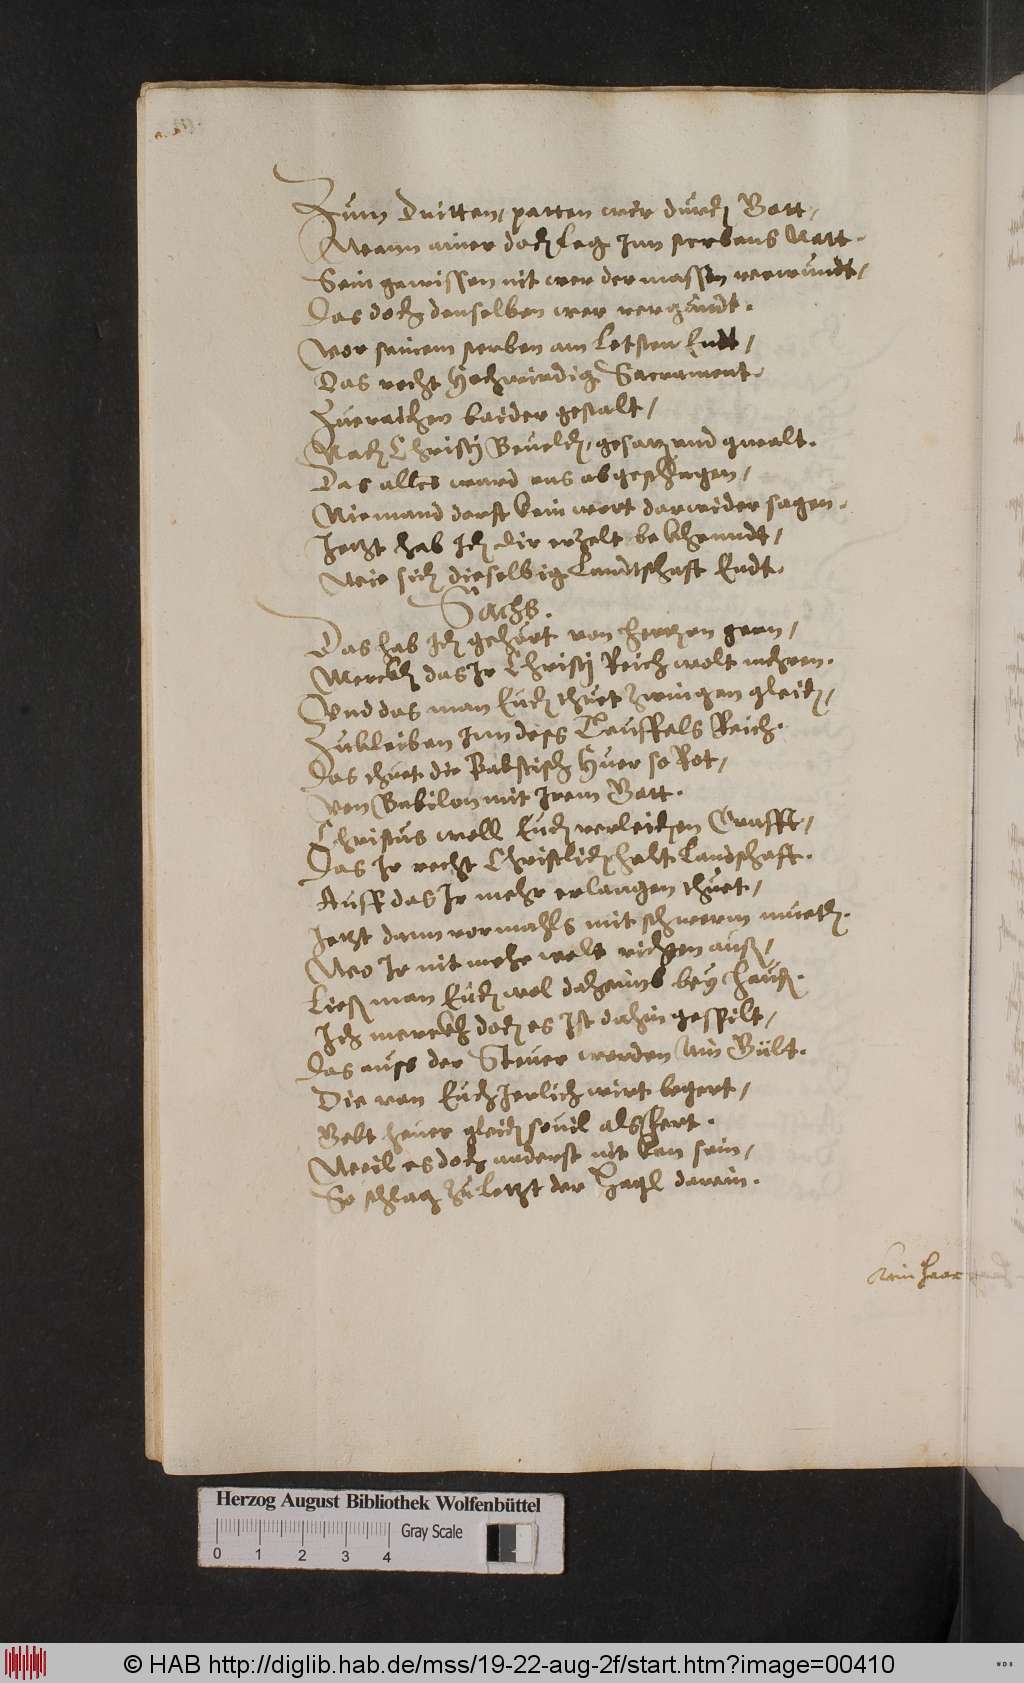 Zum Dritten, patten wir durch Gott,
Wann ainer doch leg Inn sterbens Nott.
Sein gewissen nit wer der massen verwundt,
Das doch denselben wer vergundt.
Vor seinem sterben am Letsten Endt,
Das recht Hochwirdig Sacrament.
Zueraichen baider gestalt,
Nach Christj Beuelch, gesatz und gwalt.
Das alles ward uns abgeschlagen,
Niemand dorft kein wort darwider sagen.
Jetzt hab Ich dir erzelt bekhenndt,
Wie sich dieselbig Landtschafft Endt.
Sachs.
Das hab Ich gehört von hertzen gern,
Merckh das Ir Christj Reich wolt mehren.
Und das man Euch thuet zwingen gleich,
Zubleiben Inn dess Teuffels Reich.
Das thuet die Pabstisch Huer so Rot,
Von Babilon mit Irem Gott.
Christus woll Euch verleichen Crafft,
Das Ir recht Christlich halt Landschaft.
Auff das Ir mehr erlangen thuet,
Jetzt dann vormahls mit schwerm mueth.
Wo Ir nit mehr welt richten auß,
Ließ man Euch wol dahaimb bey hauß.
Ich merckh doch es Ist dahin gespilt,
Das auss der Steuer werden ain Gült.
Die von Euch Jerlich wirt begert,
Gebt heuer gleich souil als fert.
Weil es doch anderst nit kan sein,
So schlag zu letzt der Hagl darein.
Kein Haar
Herzog August Bibliothek Wolfenbüttel
Gray Scale
0 1 2 3 4
© HAB http://diglib.hab.de/mss/19-22-aug-2f/start.htm?image=00410